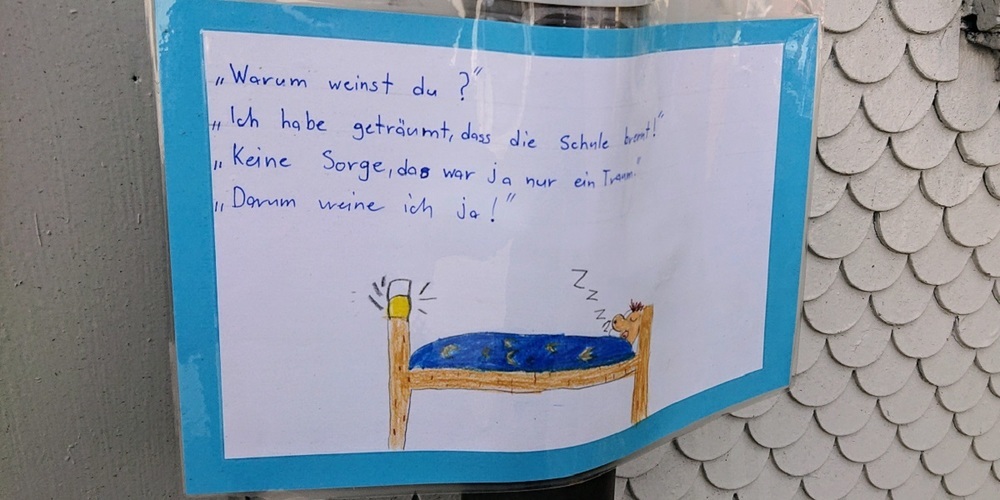 „Warum weinst du ?“
„Ich habe geträumt, dass die Schule brennt!“
„Keine Sorge, das war ja nur ein Traum.“
„Darum weine ich ja!“
Z
z
z
z